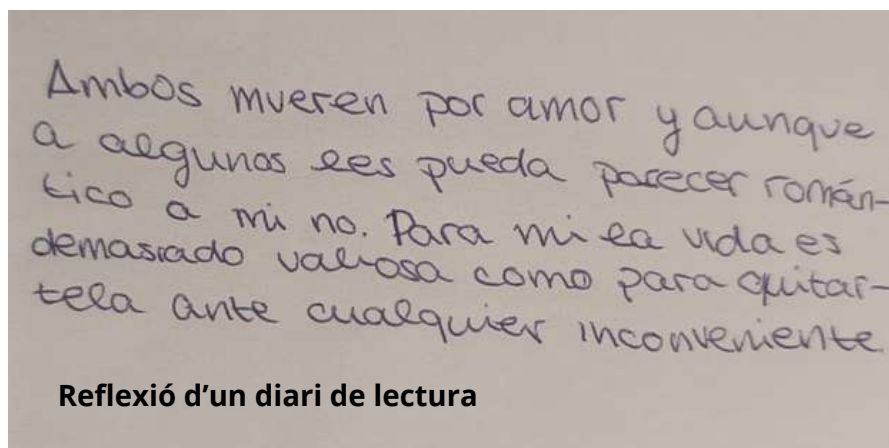 Ambos mueren por amor y aunque
a algunos les pueda parecer román-
tico a mi no. Para mi la vida es
demasiado valiosa como para quitar-
tela ante cualquier inconveniente
Reflexió d'un diari de lectura